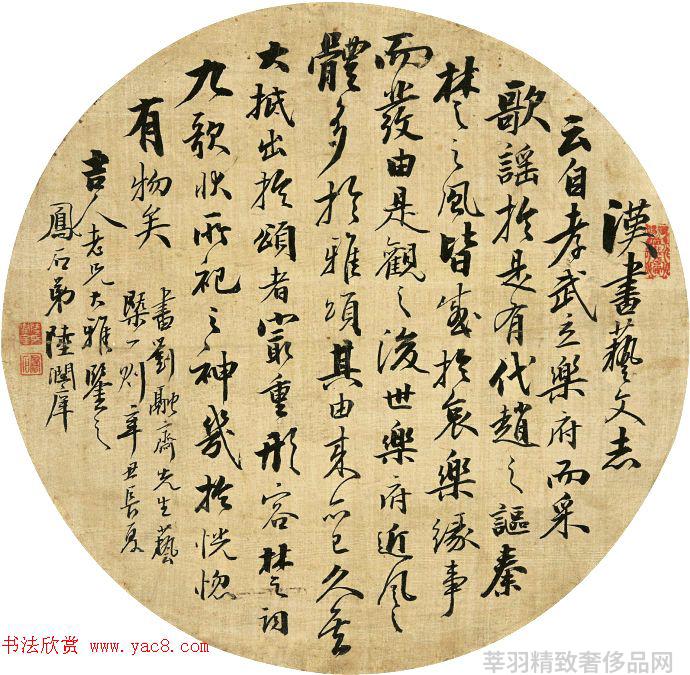 漢書藝文志
云自孝武立樂府而采
歌謡於是有代趙之謳秦
楚之風皆感於哀樂緣事
而發由是觀之後世樂府近風之
體多於雅頌其由來亦已久矣
大抵出於頌者最重形容楚詞
九歌狀所祀之神幾於恍惚
有物矣
書劉融齋先生藝
槩一則辛丑長夏
吉人老兄大雅鑒之
鳳石弟陸潤庠
书法欣赏 www.yac8.com
莘羽精致奢侈品网